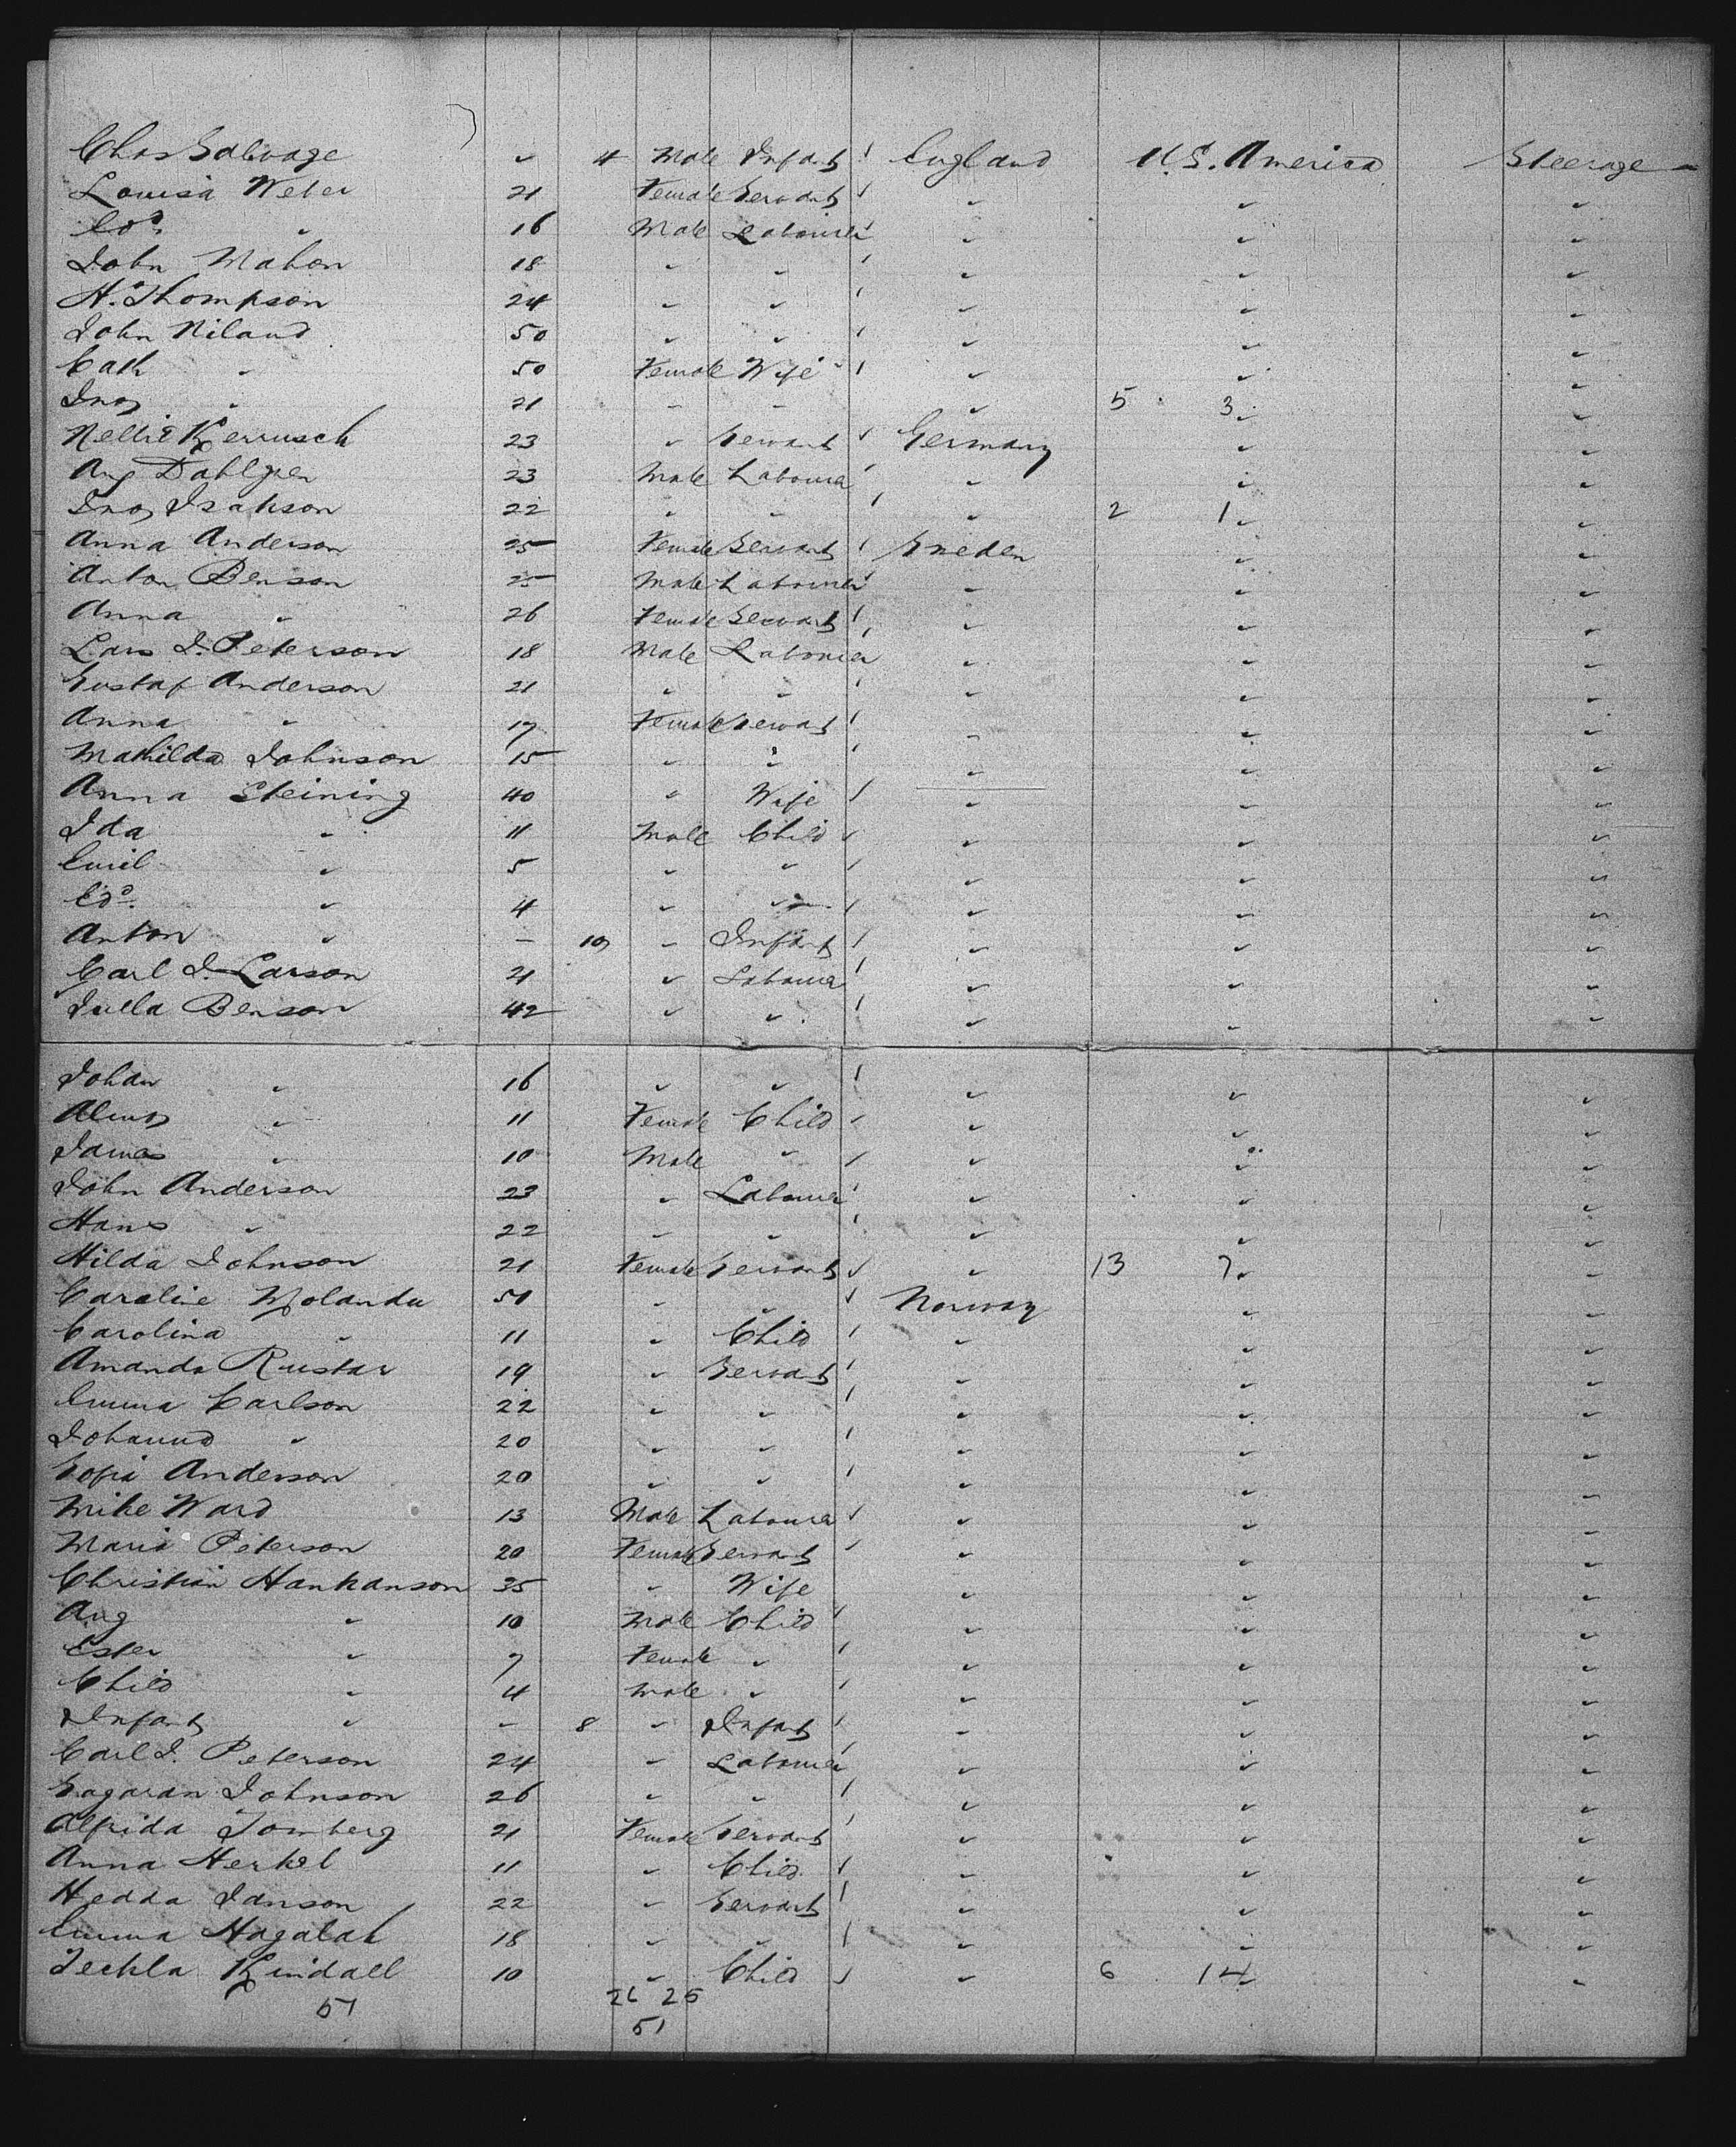 Chas Salwage ✓ 4 Male Infant England U.S. America Steerage
Louisa Weber 21 Female Servant " " "
Edd. " 16 Male Labourer " " "
John Mahon 18 " " " " "
H. Thompson 24 " " " " "
John Niland 50 " " " " "
Cath " 50 Female Wife " " "
Inoz " 21 " " " 5 3 " "
Nellie Kerrusch 23 " Servant Germany " "
Aug Dahlgren 23 Male Labourer " " "
Inoz Isakson 22 " " " 2 1 " "
Anna Anderson 25 Female Servant Sweden " "
Anton Benson 25 Male Labourer " " "
Anna " 26 Female Servant " " "
Lars J. Peterson 18 Male Labourer " " "
Gustaf Anderson 21 " " " " "
Anna " 17 Female Servant " " "
Mathilda Johnson 15 " " " " "
Anna Steining 40 " Wife " " "
Ida " 11 Male Child " " "
Emil " 5 " " " " "
Edd. " 4 " " " " "
Anton " – 10 " Infant " " "
Carl J. Larson 21 " Labourer " " "
Julla Benson 42 " " " " "
Johan " 16 " " " " "
" 11 Female Child " " "
James " 10 Male " " " "
John Anderson 23 " Labourer " " "
Hans " 22 " " " " "
Hilda Johnson 21 Female Servant " 13 7 " "
Caroline Molandu 51 " " Norway " "
Carolina " 11 " Child " " "
Amanda Rustar 19 " Servant " " "
Emma Carlson 22 " " " " "
" 20 " " " " "
Sofia Anderson 20 " " " " "
Mike Ward 13 Male Labourer " " "
Maria Peterson 20 Female Servant " " "
Christian Hankanson 35 " Wife " " "
Aug " 10 Male Child " " "
Ester " 7 Female " " " "
Child " 4 Male " " " "
Infant " – 8 " Infant " " "
Carl J. Peterson 24 " Labourer " " "
Sagaran Johnson 26 " " " " "
Alfrida Tomberg 21 Female Servant " " "
Anna Herkel 11 " Child " " "
Hedda Janson 22 " Servant " " "
Emma Hagalah 18 " " " " "
Teckla Kindall 10 " Child " 6 14 " "
51 26 25
51